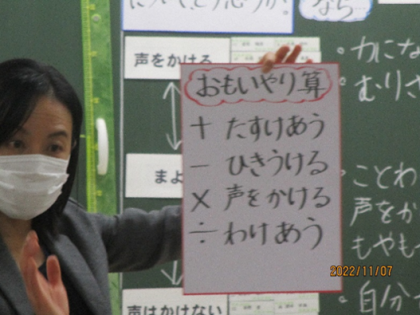 声をかける
まよ
声はかけない
おもいやり算
+ たすけあう
− ひきうける
× 声をかける
÷ わけあう
なら
・力にな
・むりさ
・ことわ
声をか
もやも
・自分
2022/11/07